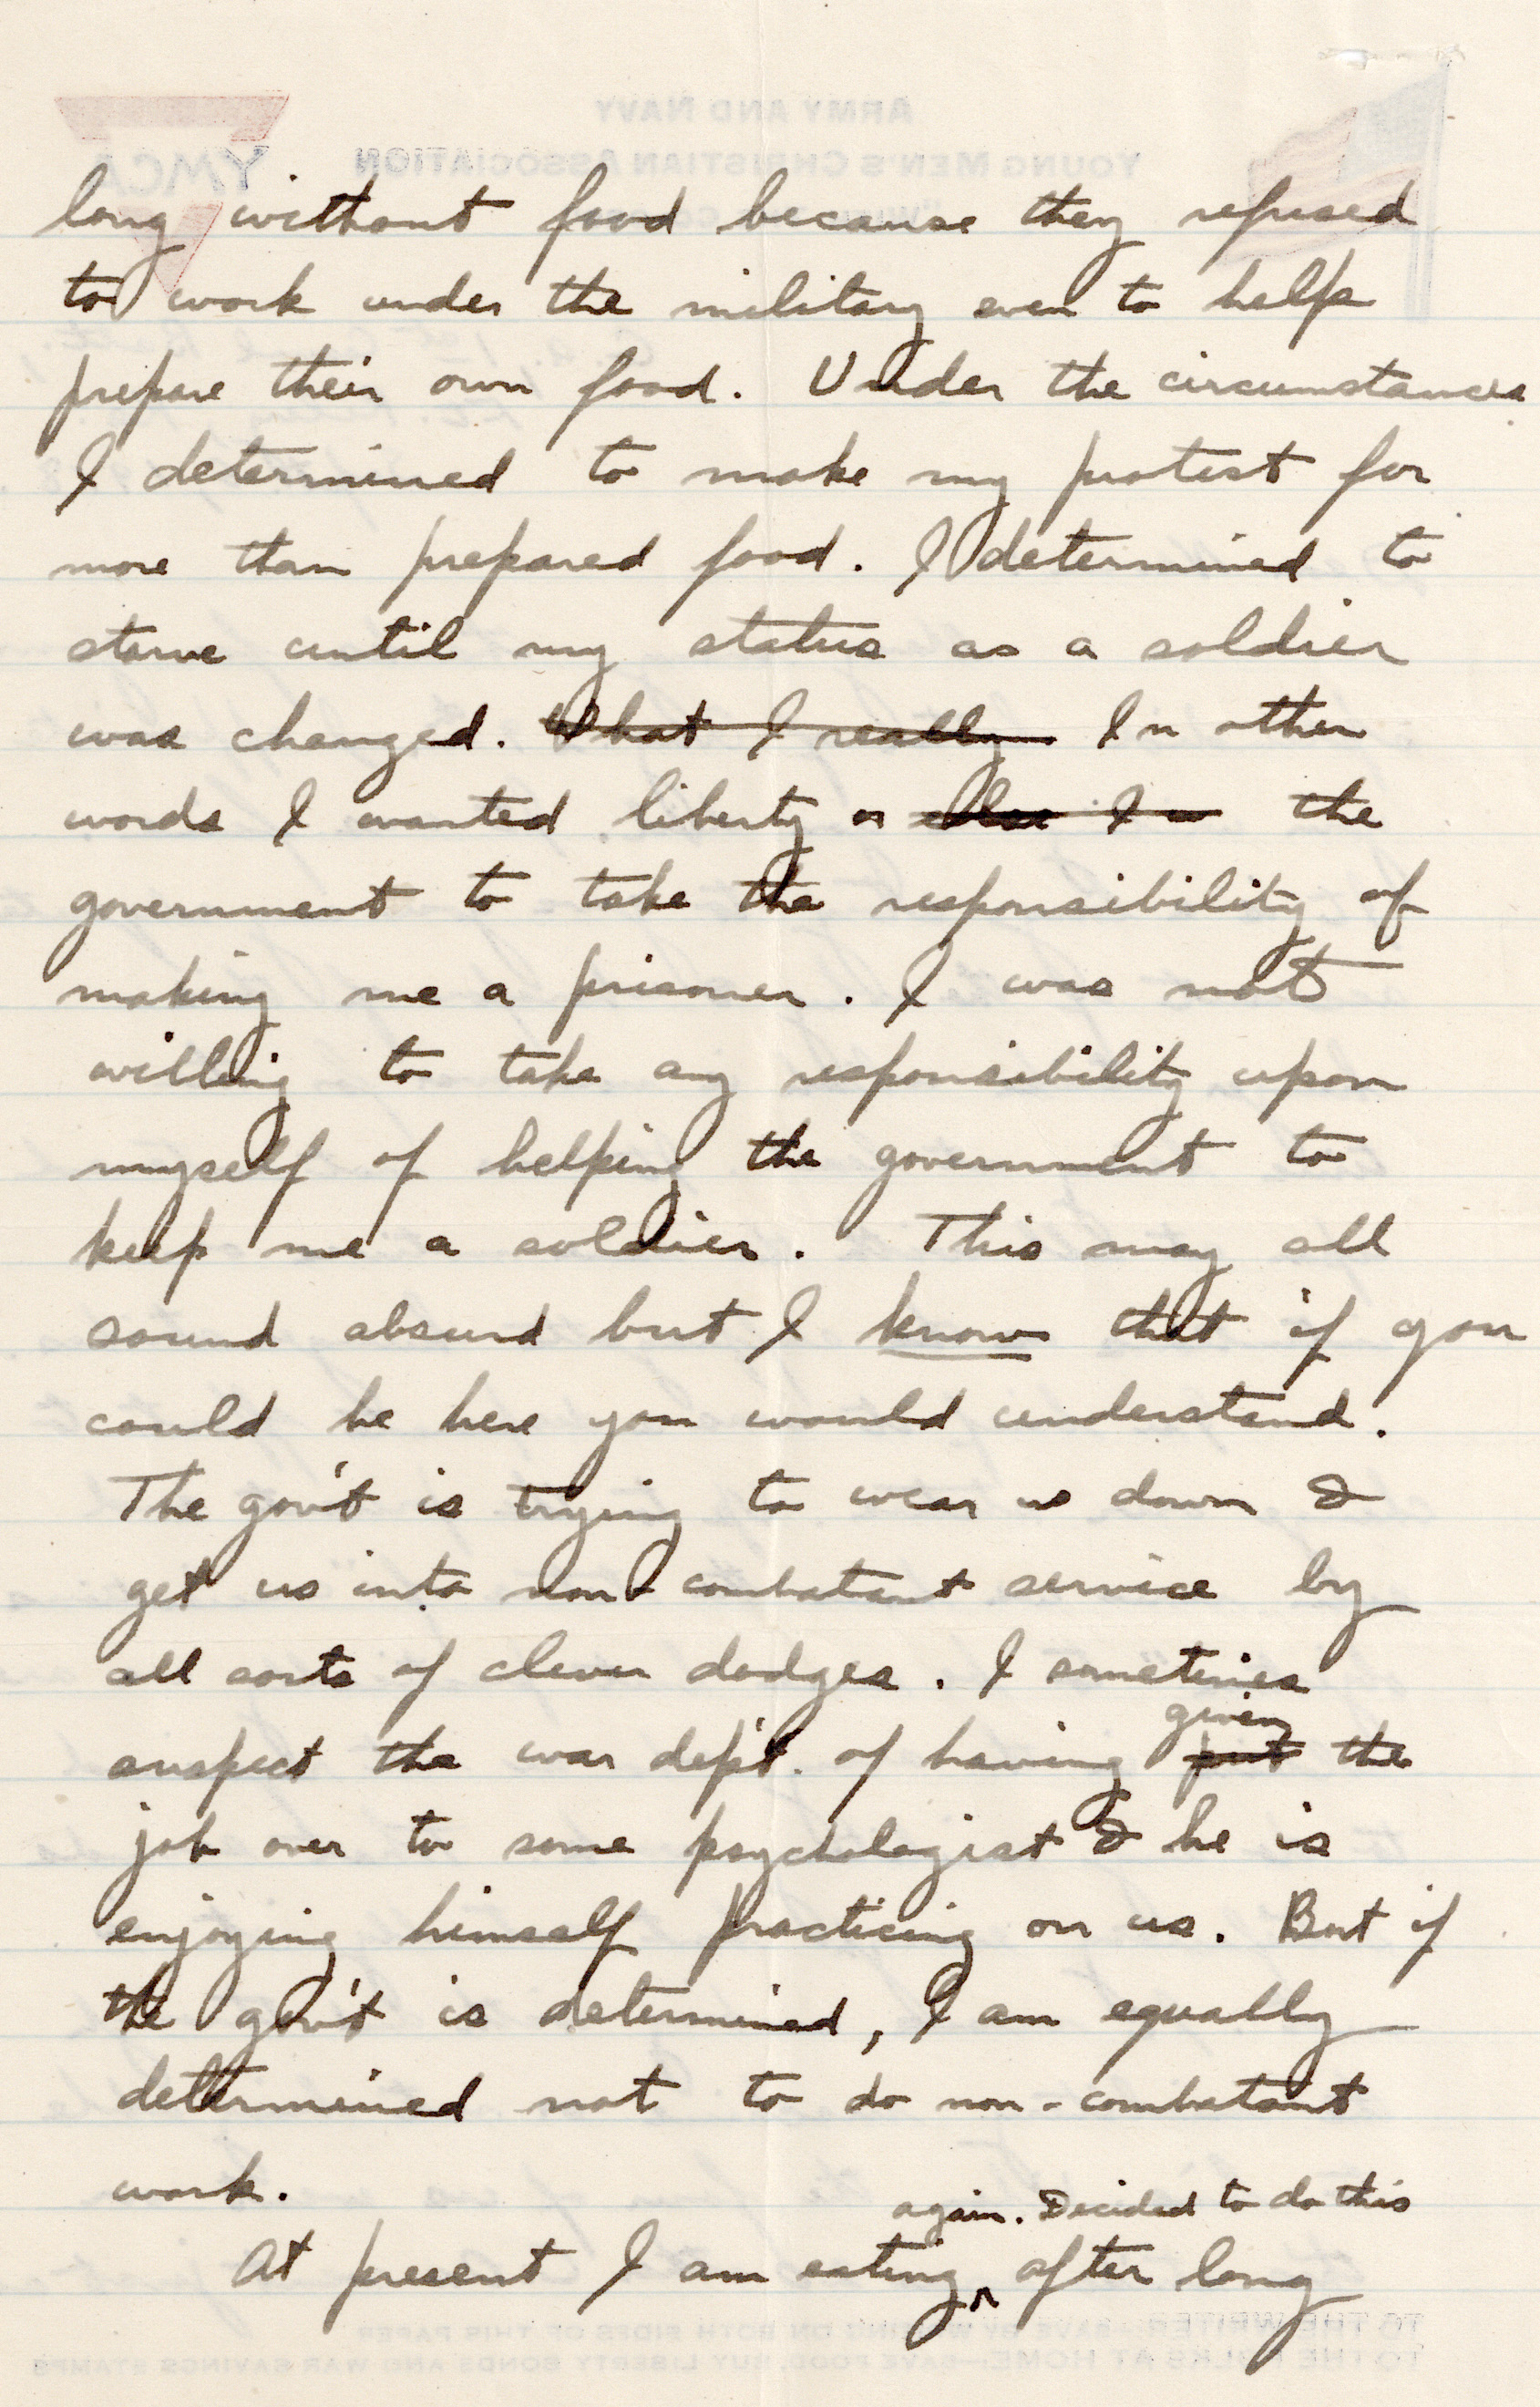 ARMY AND NAVY
YOUNG MEN'S CHRISTIAN ASSOCIATION
YMCA
long without food because they refused
to work under the military even to help
prepare their own food. Under the circumstances
I determined to make my protest for
more than prepared food. I determined to
starve until my status as a soldier
was changed. What I really In other
words I wanted liberty or else I w the
government to take the responsibility of
making me a prisoner. I was not
willing to take any responsibility upon
myself of helping the government to
keep me a soldier. This may all
sound absurd but I know that if you
could be here you would understand.
The gov't is trying to wear us down &
get us into non-combatant service by
all sorts of clever dodges. I sometimes
suspect the war dep't. of having put given the
job over to some psychologist & he is
enjoying himself practicing on us. But if
the gov't is determined, I am equally
determined not to do non-combatant
work.
again. Decided to do this
At present I am eating ^ after long
TO THE WRITER—SAVE BY WRITING ON BOTH SIDES OF THIS PAPER
TO THE FOLKS AT HOME—SAVE FOOD, BUY LIBERTY BONDS AND WAR SAVINGS STAMPS